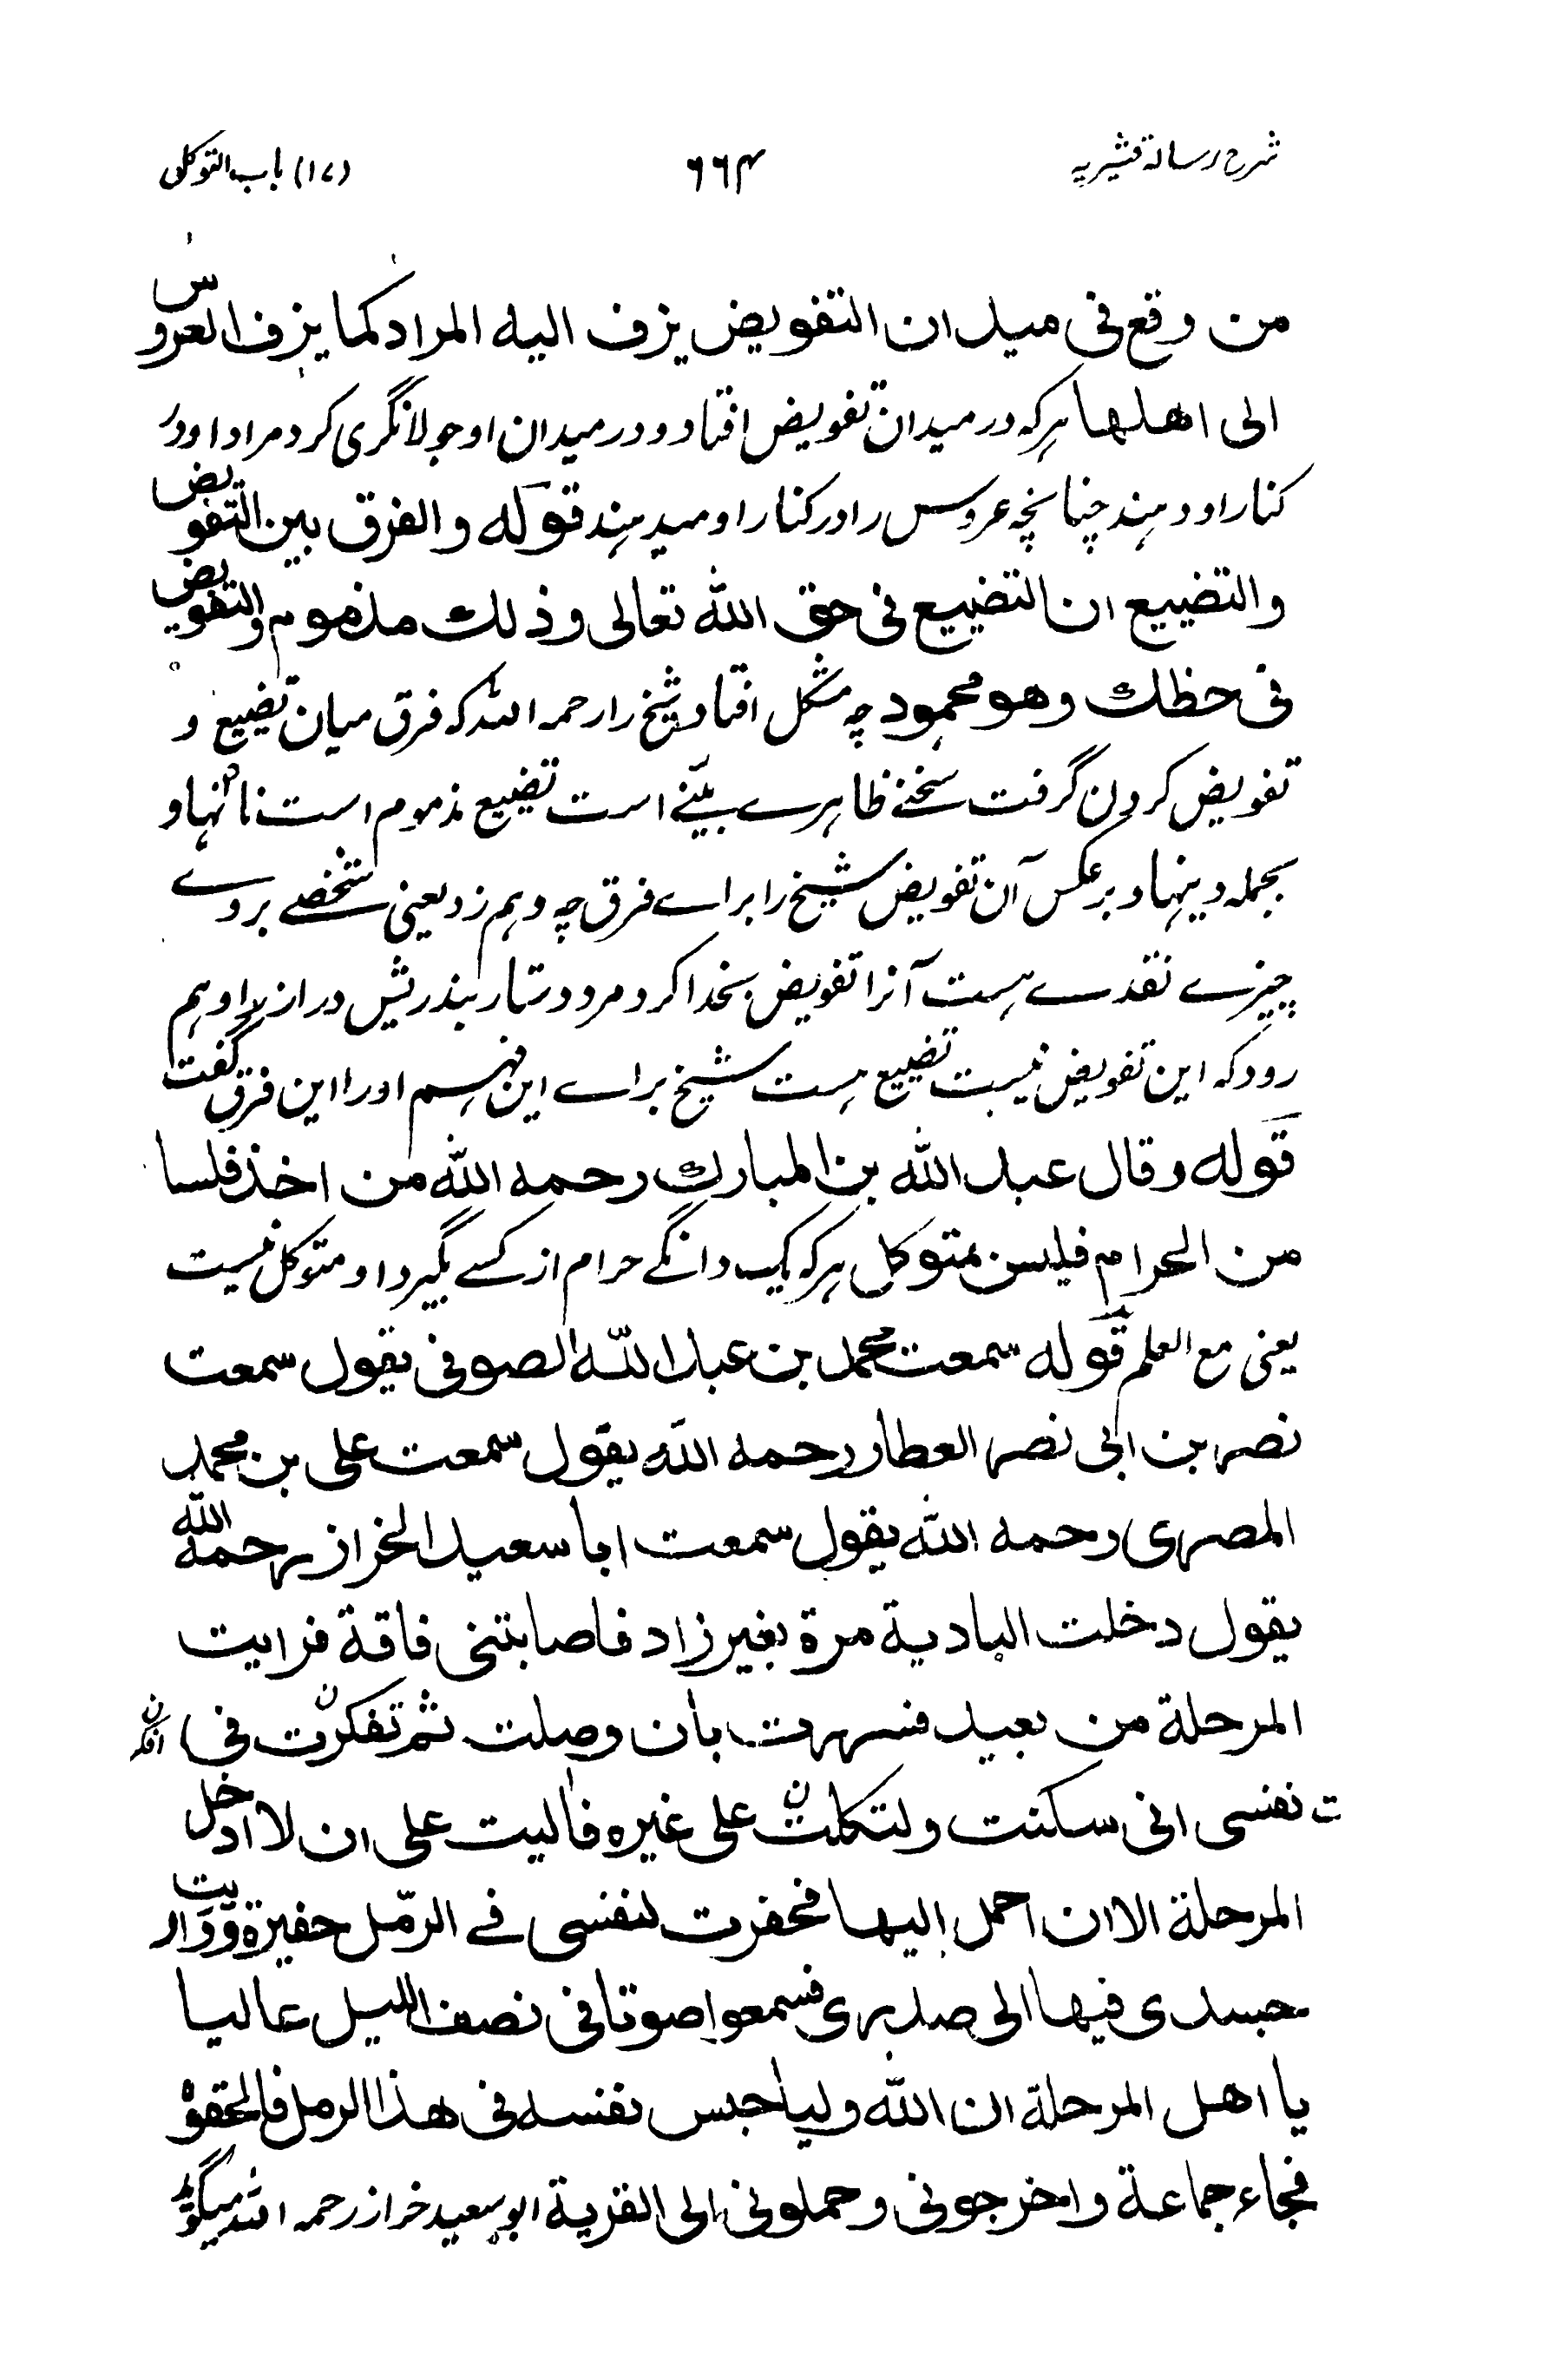 شرح رسالۀ قشیریہ ۶۶۴ (۱۷) باب التوکل
من وقع فی میدان التفویض یزف الیہ المراد کما یزف العروس
الی اھلھا ہرکہ در میدان تفویض افتاد و در میدان او جولانگری کرد مراد او در
کنار او دہند چنانچہ عروس را در کنار او میدہند قولہ والفرق بین التفویض
والتضییع ان التضییع فی حق اللہ تعالی وذلک مذموم والتفویض
فی حظك وھو محمود چہ مشکل افتاد شیخ را رحمہ اللہ کہ فرق میان تضییع و
تفویض کردن گرفت سخنے ظاہرے بیّنے است تضییع مذموم است نانہا و
بجملہ دینہا و برعکس آن تفویض شیخ را براے فرق چہ وہم زد یعنی شخصے بروے
چیزے نقدے ہست آنرا تفویض بخدا کرد مرد دستار بند ریش دراز را وہم
رود کہ این تفویض نیست تضییع ہست شیخ براے این فہم او را این فرق گفت
قولہ وقال عبد اللہ بن المبارك رحمہ اللہ من اخذ فلسا
من الحرام فلیس بمتوکل ہرکہ یک دانگے حرام از کسے بگیرد او متوکل نیست
یعنی مع العلم قولہ سمعت محمد بن عبد اللہ الصوفی یقول سمعت
نصر بن ابی نصر العطار رحمہ اللہ یقول سمعت علی بن محمد
المصری رحمہ اللہ یقول سمعت ابا سعید الخراز رحمہ اللہ
یقول دخلت البادیة مرة بغیر زاد فاصابتنی فاقة فرایت
المرحلة من بعید فسررت بان وصلت ثم تفکرت فی
نفسی انی سکنت واتکلت علی غیرہ فاٰلیت علی ان لا ادخل
المرحلة الا ان احمل الیھا فحفرت لنفسی فے الرمل حفیرة وواریت
جسدی فیھا الی صدری فسمعوا صوتا فی نصف اللیل عالیا
یا اھل المرحلة ان اللہ ولیا حبس نفسہ فی ھذا الرمل فالحقوہ
فجاء جماعة واخرجونی وحملونی الی القریة ابو سعید خراز رحمہ اللہ میگوید